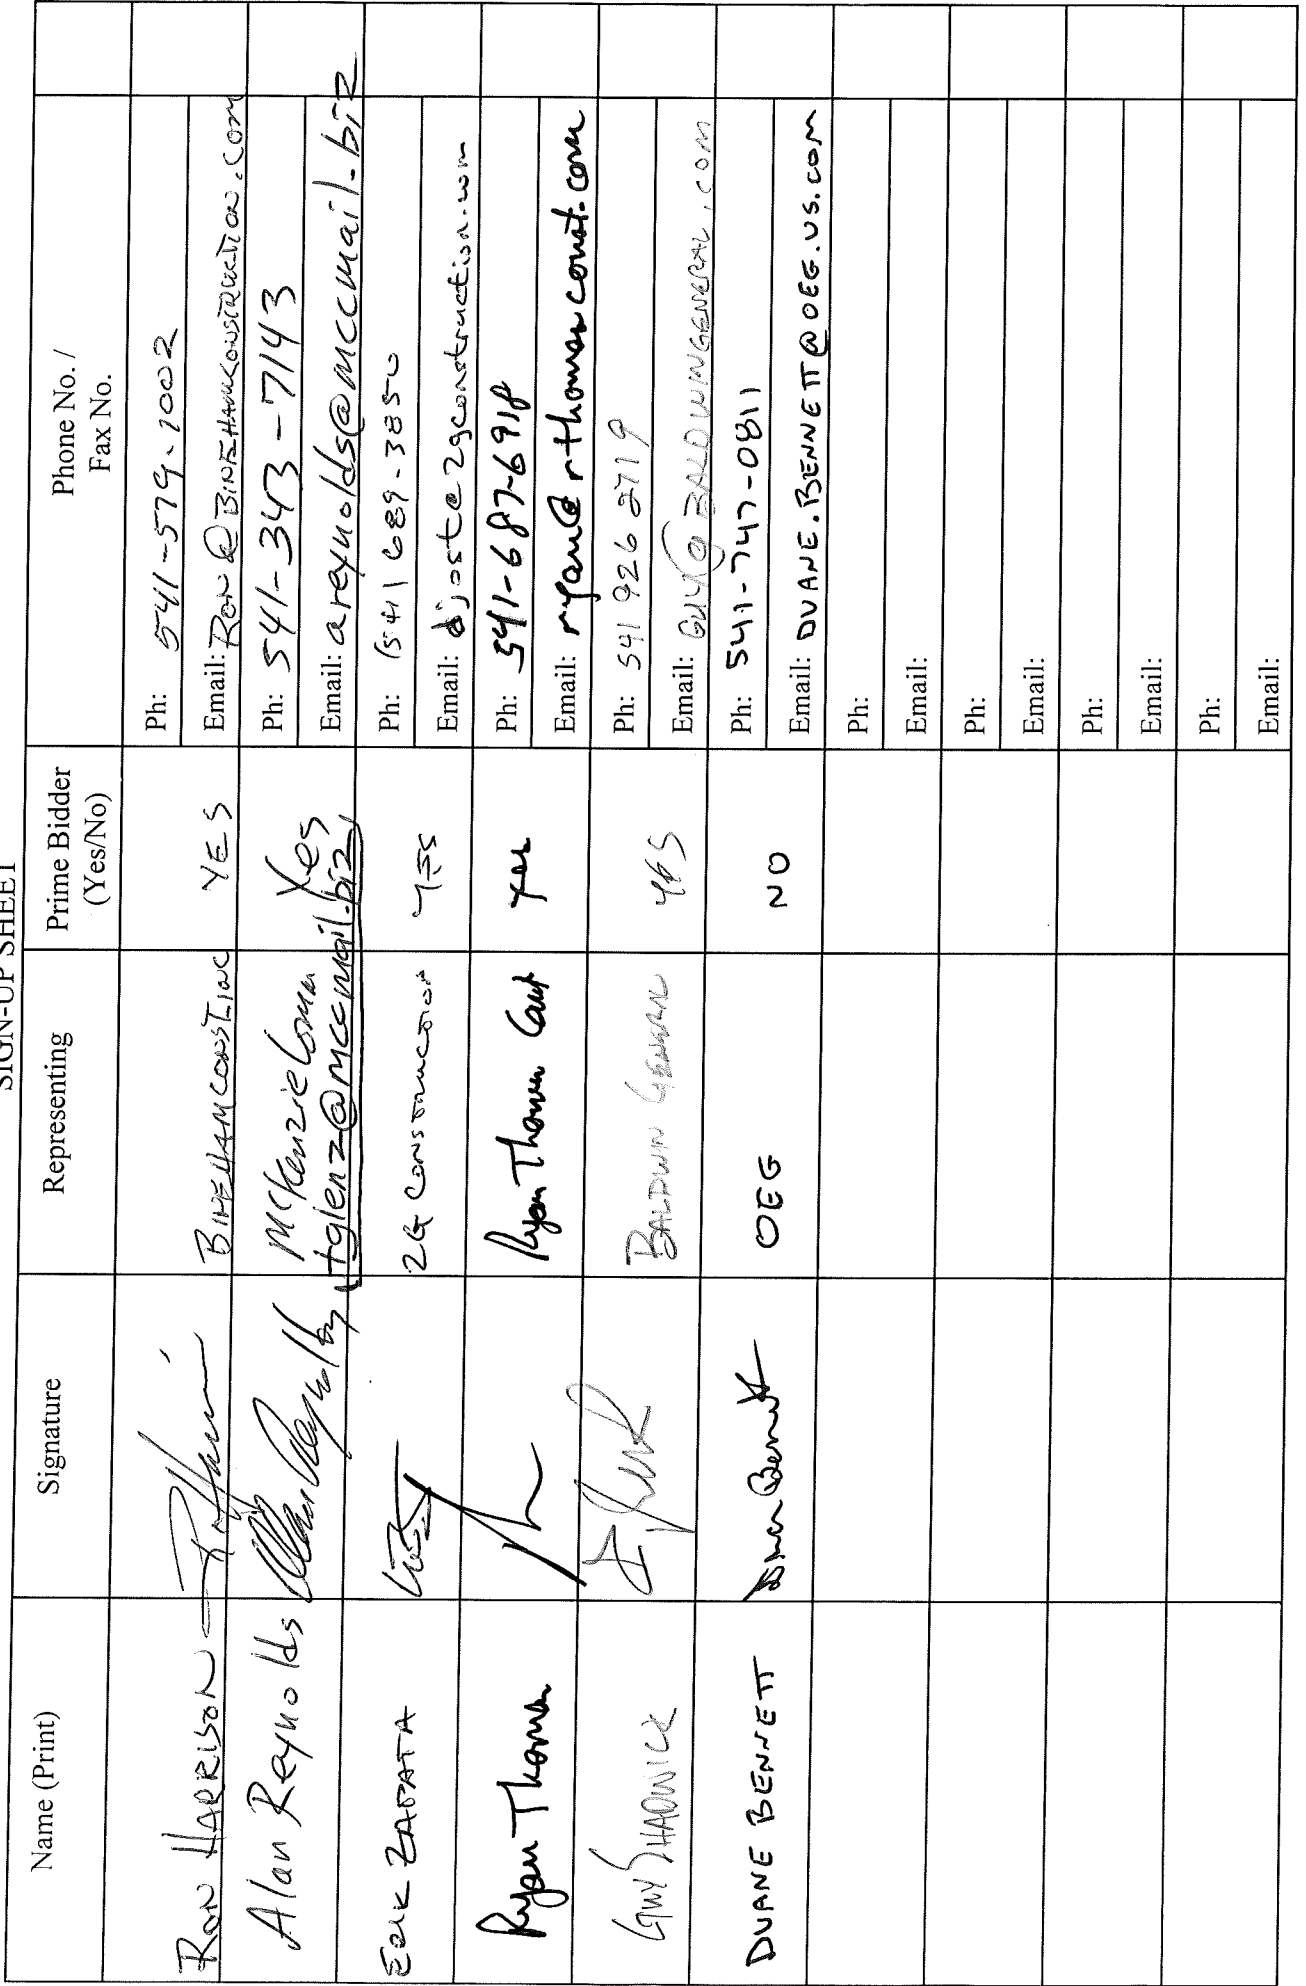 SIGN-UP SHEET
Name (Print) Signature Representing Prime Bidder (Yes/No) Phone No. / Fax No.
RON HARRISON YES Ph: 541-579-1002
Email: RON@
Alan Reynolds McKenzie Comm Yes Ph: 541-343-7143
tglenz@mccmail.biz Email: areynolds@mccmail.biz
ERIK ZAPATA 2G CONSTRUCTION YES Ph: (541 689-3850
Email: djost@2gconstruction.com
Ryan Thomas Ryan Thomas Const yes Ph: 541-687-6918
Email: ryan@rthomasconst.com
GUY SHADWICK BALDWIN GENERAL YES Ph: 541 926 2719
Email: GUY@BALDWINGENERAL.COM
DUANE BENNETT Duane Bennett OEG NO Ph: 541-747-0811
Email: DUANE.BENNETT@OEG.US.COM
Ph:
Email:
Ph:
Email:
Ph:
Email:
Ph:
Email: